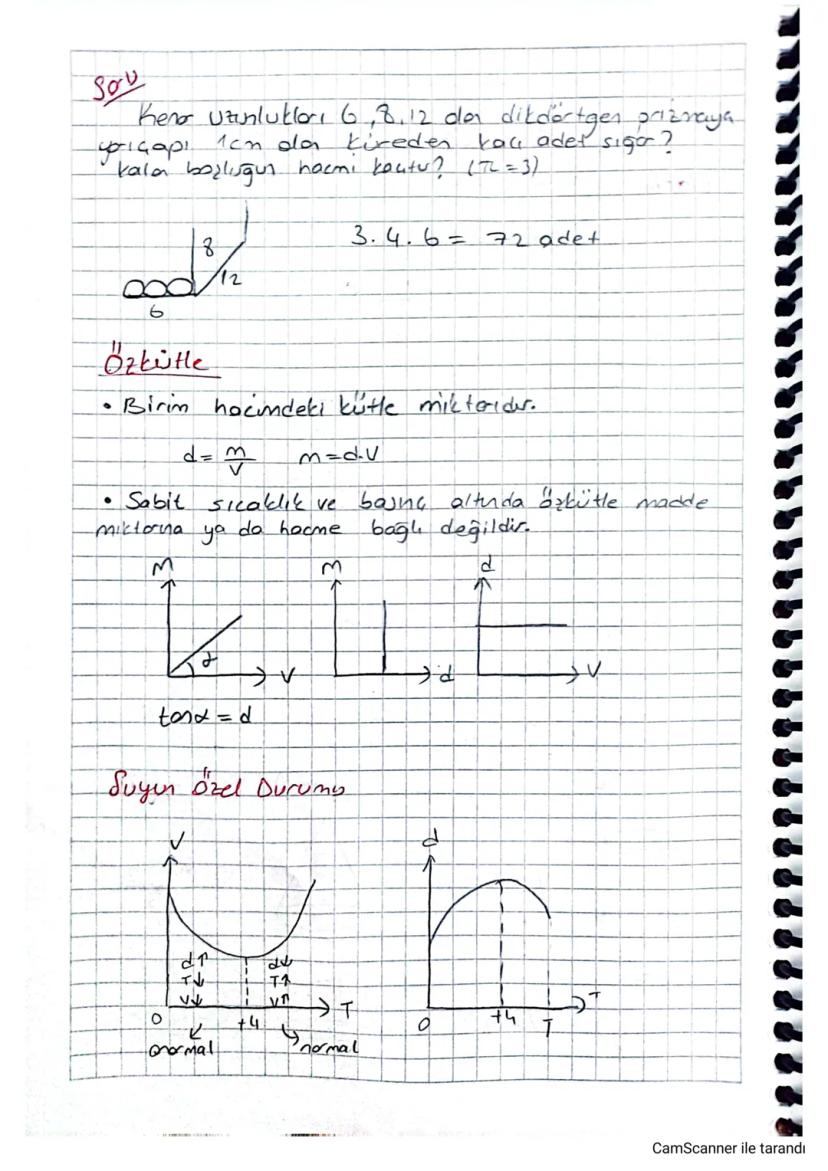 Soru
Kenar uzunlukları 6,8,12 olan dikdörtgen prizmaya
yarıçapı 1cm olan küreden kaç adet sığar?
Kalan boşluğun hacmi kaçtır? (π=3)
3.4.6= 72 adet
8
12
6
Özkütle
• Birim hacimdeki kütle miktarıdır.
d= m/V m=d.V
• Sabit sıcaklık ve basınç altında özkütle madde
miktarına ya da hacme bağlı değildir.
m m d
α
V d V
tanα = d
Suyun Özel Durumu
V d
d↑ d↓
T↓ T↑
V↓ V↑
0 +4 T 0 +4 T T
anormal normal
CamScanner ile tarandı